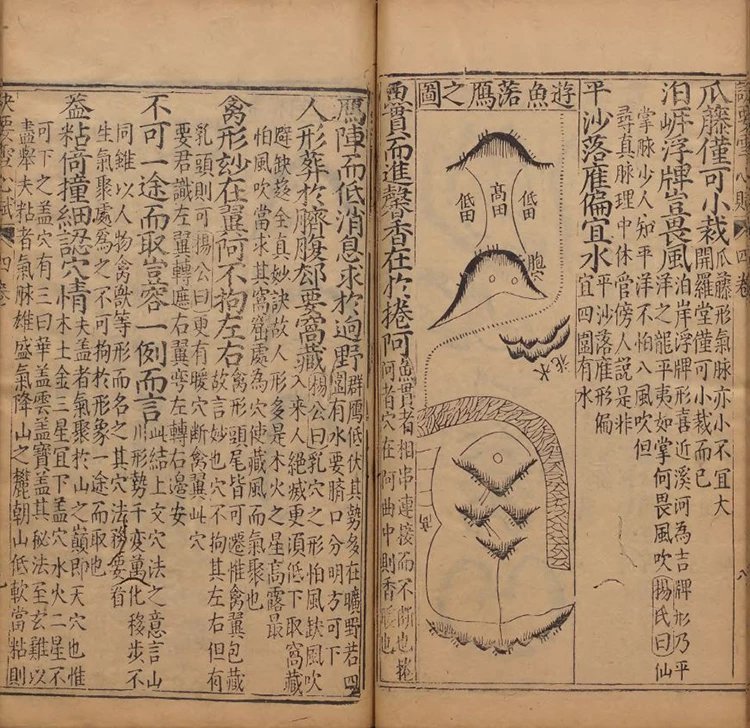 瓜藤僅可小裁
瓜藤形氣脉亦小不宜大
開羅堂僅可小裁而已
泊岍浮牌豈畏風
泊岸浮牌形喜近溪河為吉牌形乃平
洋之龍平夷如掌何畏風吹楊氏曰仙
掌脉少人知平洋不怕八風吹但
尋真脉理中休管傍人說是非
平沙落雁偏宜水
平沙落雁形偏
宜四圍有水
遊魚落鴈之圖
低田
高田
低田
水
魚貫而進馨香在於捲阿
魚貫者相串連接而不斷也捲
阿者穴在阿曲中則香暖也
鴈陣而低消息求於迥野
群鴈低伏其勢多在曠野若四
圍有水要臍口分明方可下
人形葬於臍腹郤要窩藏
楊公曰乳穴之形怕風缺風吹
入來人絕滅更須低下取窩藏
避缺趍全真妙訣故人形多是木火之星高露最
怕風吹當求其窩窟處為穴使藏風而氣聚也
禽形玅在翼阿不拘左右
禽形頭尾皆可遷惟禽翼包藏
故言妙也穴不拘其左右但有
乳頭則可楊公曰更有暖穴斷禽翼此穴
要君識左翼轉遮右翼彎左轉右邊安
不可一途而取豈容一例而言
此結上文穴法之意言山
川形勢千變萬化移步不
同錐以人物禽獸等形而名之其穴法務要看
生氣聚處為之不可拘於形象一途而取也
葢粘倚撞細認穴情
夫盖者氣聚於山之巔即天穴也惟
木土金三星宜下盖穴水火二星不
可下之盖穴有三曰華盖雲盖寶盖其秘法至玄難以
盡舉夫粘者氣脉雄盛氣降山之麓朝山低軟當粘則